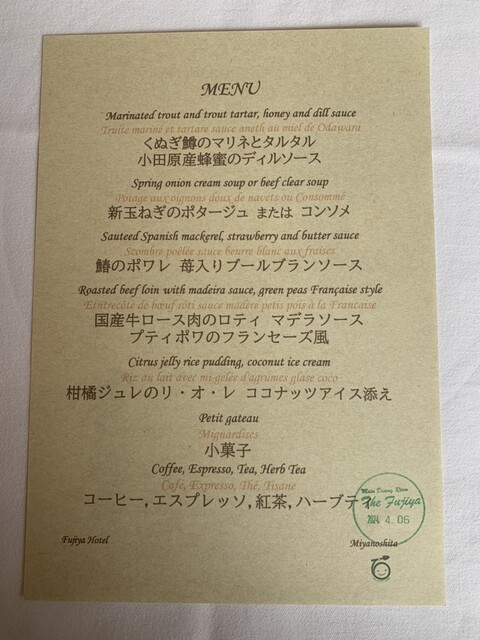 MENU
Marinated trout and trout tartar, honey and dill sauce
Truite mariné et tartare sauce aneth au miel de Odawara
くぬぎ鱒のマリネとタルタル
小田原産蜂蜜のディルソース
Spring onion cream soup or beef clear soup
Potage aux oignons doux de navets ou Consommé
新玉ねぎのポタージュ または コンソメ
Sauteed Spanish mackerel, strawberry and butter sauce
Scombre poêlée sauce beurre blanc aux fraises
鰆のポワレ 苺入りブールブランソース
Roasted beef loin with madeira sauce, green peas Française style
Entrecôte de bœuf rôti sauce madère petits pois à la Francaise
国産牛ロース肉のロティ マデラソース
プティポワのフランセーズ風
Citrus jelly rice pudding, coconut ice cream
Riz au lait avec mi-gelée d'agrumes glase coco
柑橘ジュレのリ・オ・レ ココナッツアイス添え
Petit gateau
Mignardises
小菓子
Coffee, Espresso, Tea, Herb Tea
Café, Expresso, Thé, Tisane
コーヒー, エスプレッソ, 紅茶, ハーブテ
Main Dining Room
The Fujiya
2024. 4. 06
Fujiya Hotel
Miyanoshita